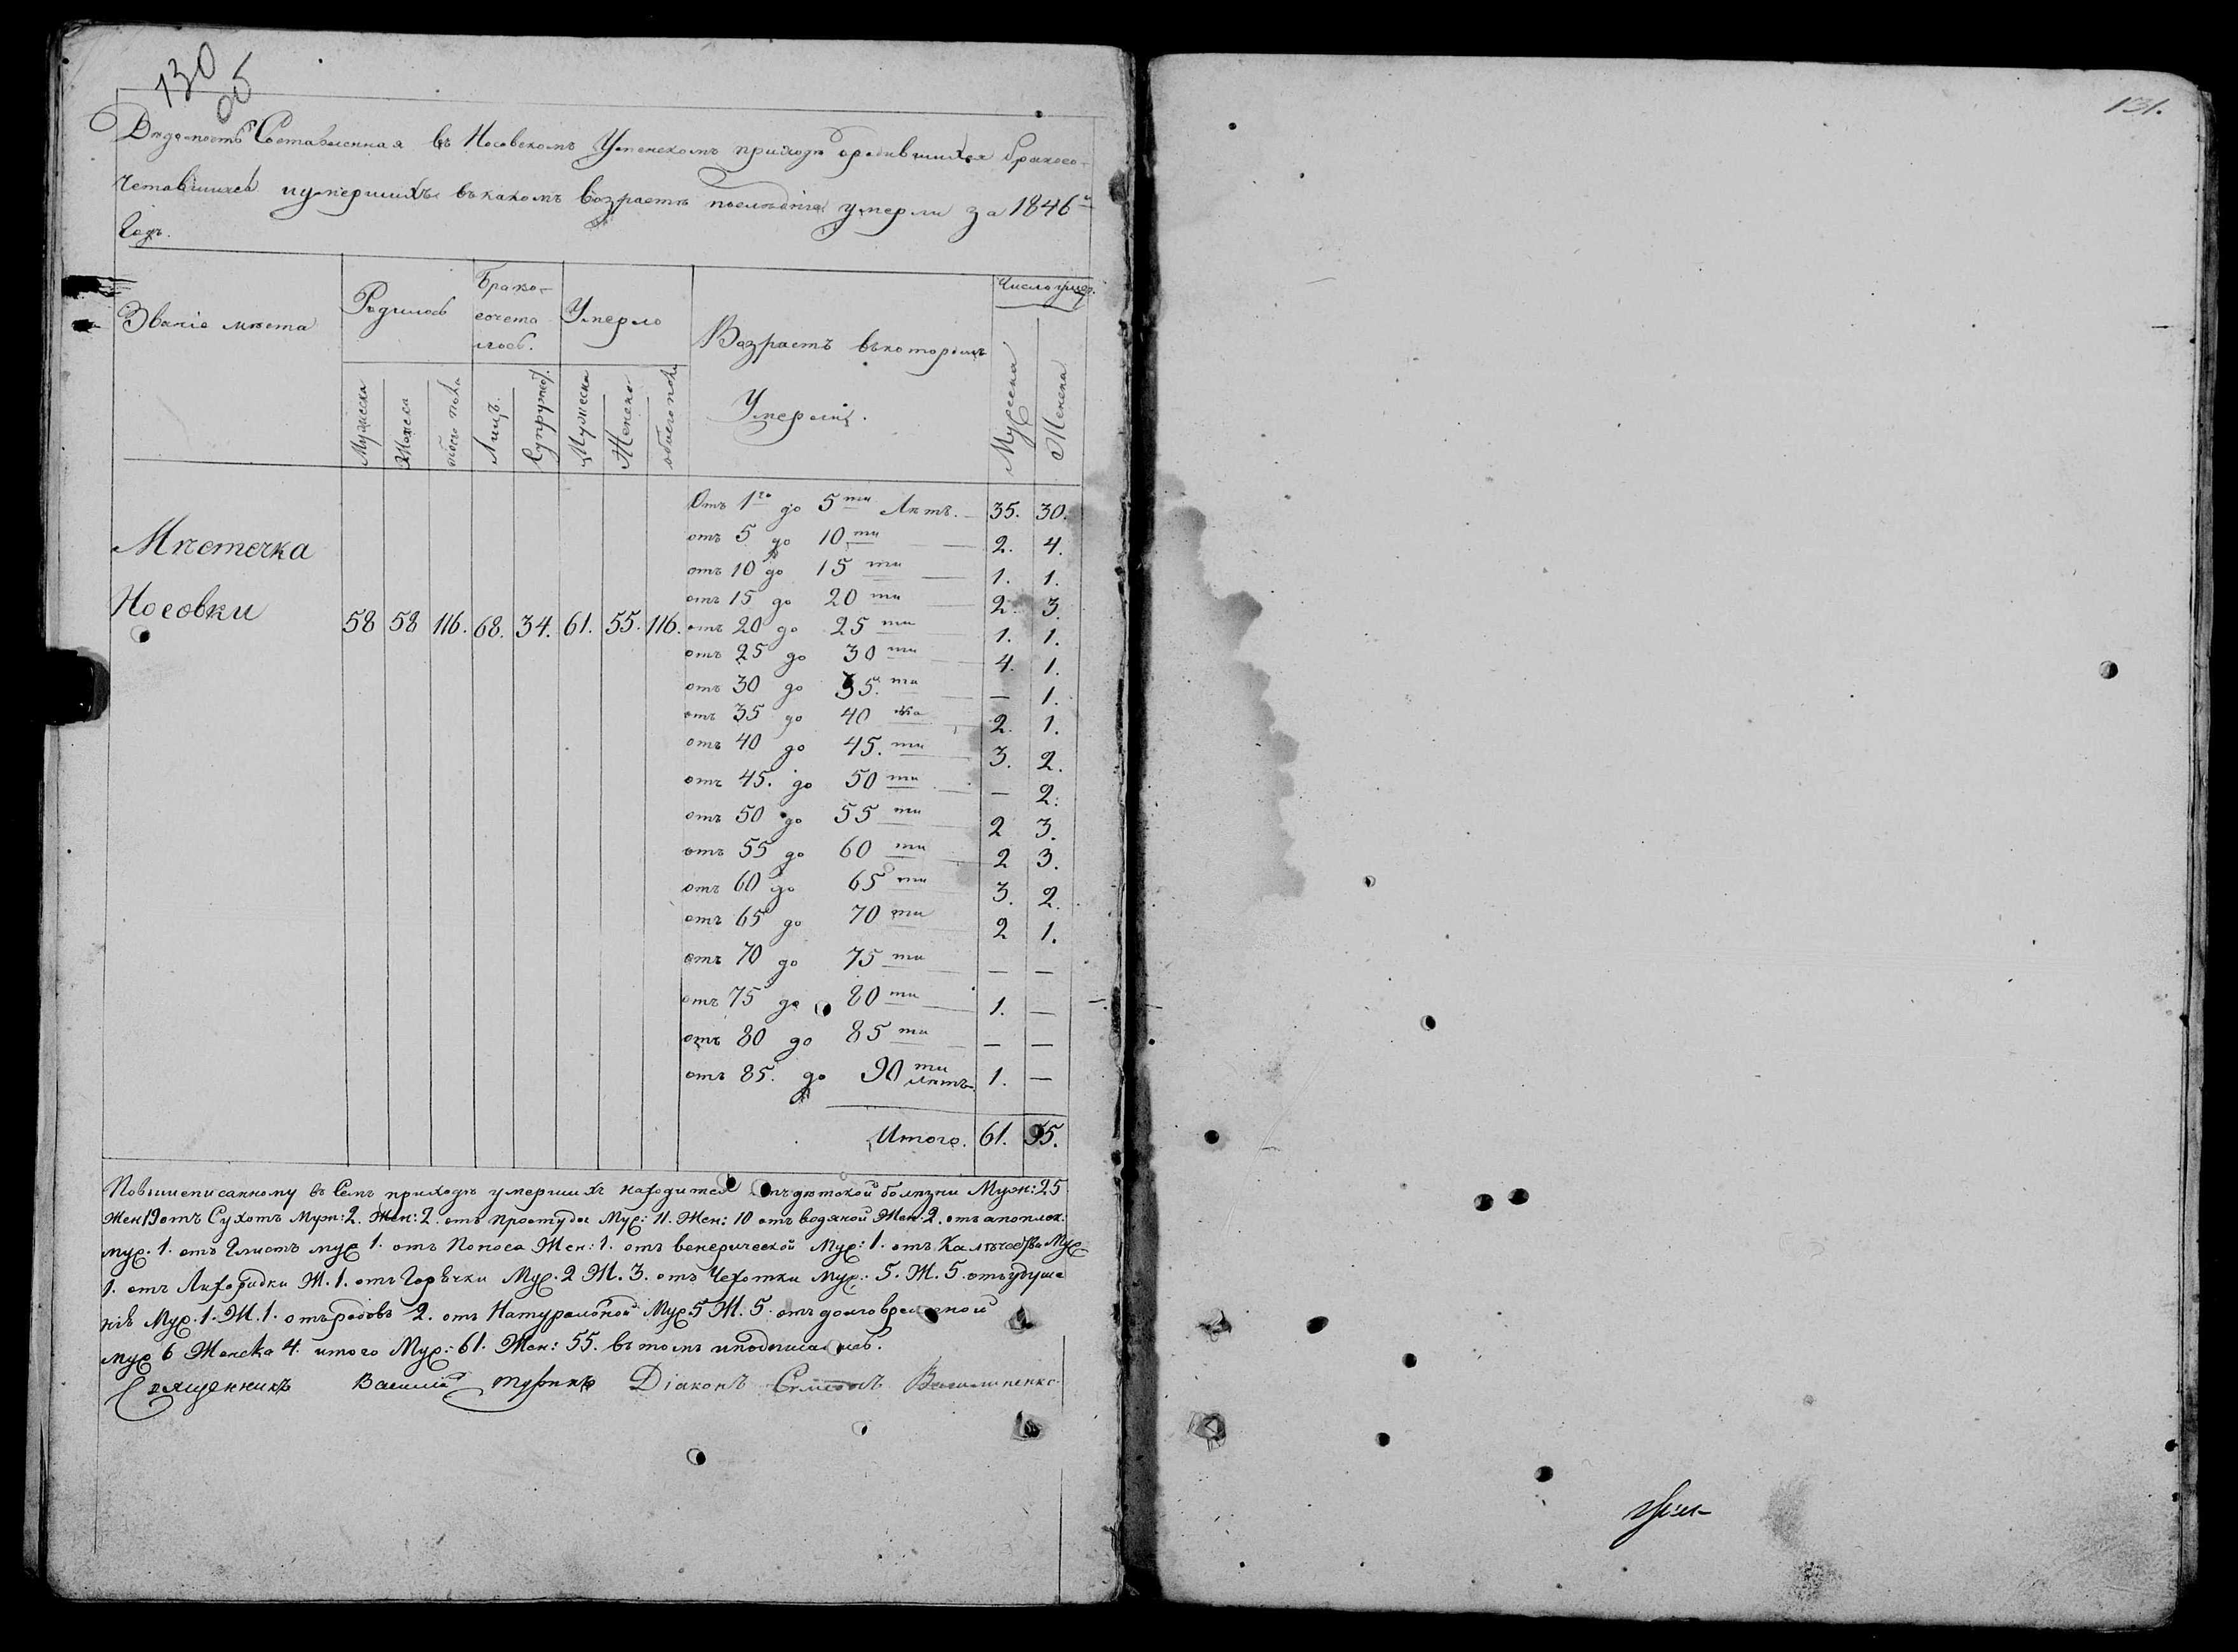 130
131.
Вѣдомость Составленная въ Носовскомъ Успенскомъ приходѣ ородившихся бракосо-
четавшихся иумершихъ въкакомъ возрастѣ послѣднiе умерли за 1846й
Годъ.
Званiе мѣста
Родилось
Брако-
сочета
лось.
Умерло
Возрастъ вькоторомъ
Умерли.
Число умер.
Мужеска
Женска
обоего пола
Лицъ.
Супружес.
Мужеска
Женска
обоего пола
Мужеска
Женска
Мѣстечка
Носовки 58 58 116. 68. 34. 61. 55. 116.
Отъ 1го до 5ти Лѣтъ. 35. 30.
отъ 5 до 10ти 2. 4.
отъ 10 до 15ти 1. 1.
отъ 15 до 20ти 2. 3.
отъ 20 до 25ти 1. 1.
отъ 25 до 30ти 4. 1.
отъ 30 до 35.ти — 1.
отъ 35 до 40 2. 1.
отъ 40 до 45.ти 3. 2.
отъ 45. до 50ти — 2.
отъ 50 до 55ти 2 3.
отъ 55 до 60ти 2 3.
отъ 60 до 65ти 3. 2.
отъ 65 до 70ти 2 1.
отъ 70 до 75ти — —
отъ 75 до 80ти 1. —
отъ 80 до 85ти — —
отъ 85. до 90ти лѣтъ 1. —
Итого. 61. 55.
Повышеписанному въ Семъ приходѣ умершихъ находится отъ дѣтской болѣзни Муж: 25
Жен 19 отъ Сухотъ Муж: 2. Жен: 2. отъ простуды Муж: 11. Жен: 10 отъ водяной Жен: 2. отъ апоплек.
муж. 1. отъ Глистъ муж 1. отъ Поноса Жен: 1. отъ венерической Муж: 1. отъ Муж
1. отъ Лихорадки Ж. 1. отъ Горячки Муж. 2 Ж. 3. отъ Чехотки Муж: 5. Ж. 5. отъ удуше
нiя Муж. 1. Ж. 1. отъ родовъ 2. отъ Натуральной Муж 5 Ж. 5. отъ долговременной
муж 6 Женска 4. итого Муж: 61. Жен: 55. въ томъ иподписались.
Священникъ Василiй Дiаконъ Симеонъ Василиненко